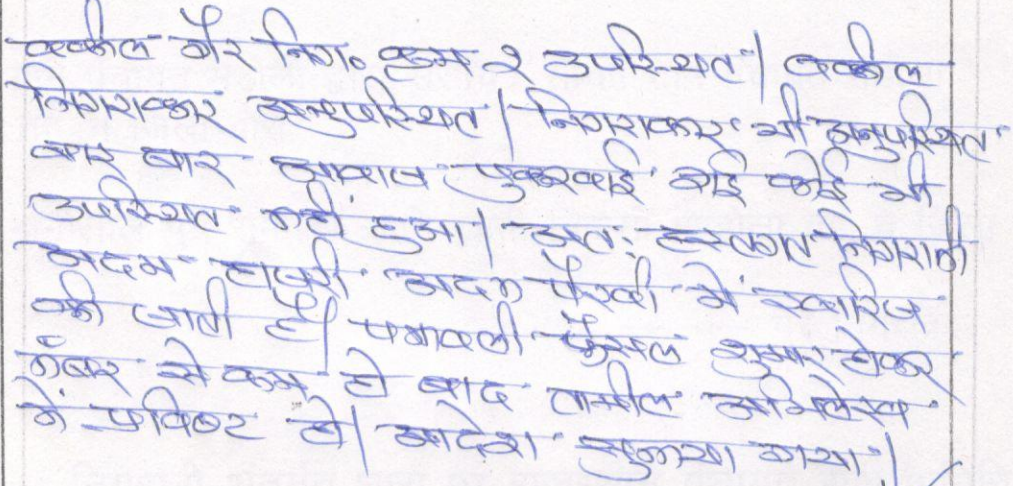 वकील गैर निग० क्रम २ उपस्थित। वकील
निगराकार अनुपस्थित। निगराकार भी अनुपस्थित
बार बार आवाज पुकरवाई गई कोई भी
उपस्थित नहीं हुआ। अतः हस्तगत निगरानी
अदम हाजरी अदम पैरवी में खारिज
की जाती है। पत्रावली फैसल शुमार होकर
नंबर से कम हो बाद तामील अभिलेख
में प्रविष्ट हो। आदेश सुनाया गया।